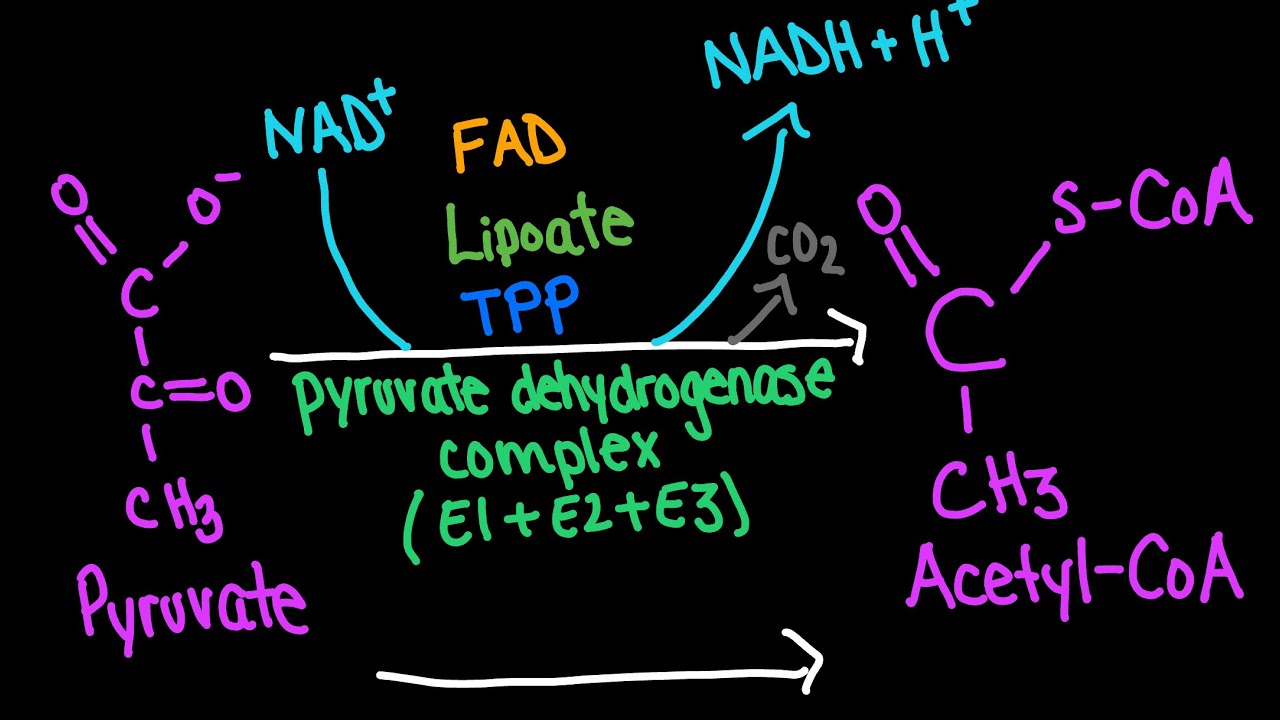 NAD⁺
NADH + H⁺
FAD
Lipoate
TPP
CO₂
O
O⁻
C
C=O
CH₃
Pyruvate
Pyruvate dehydrogenase
complex
(E1+E2+E3)
O
S-CoA
C
CH₃
Acetyl-CoA